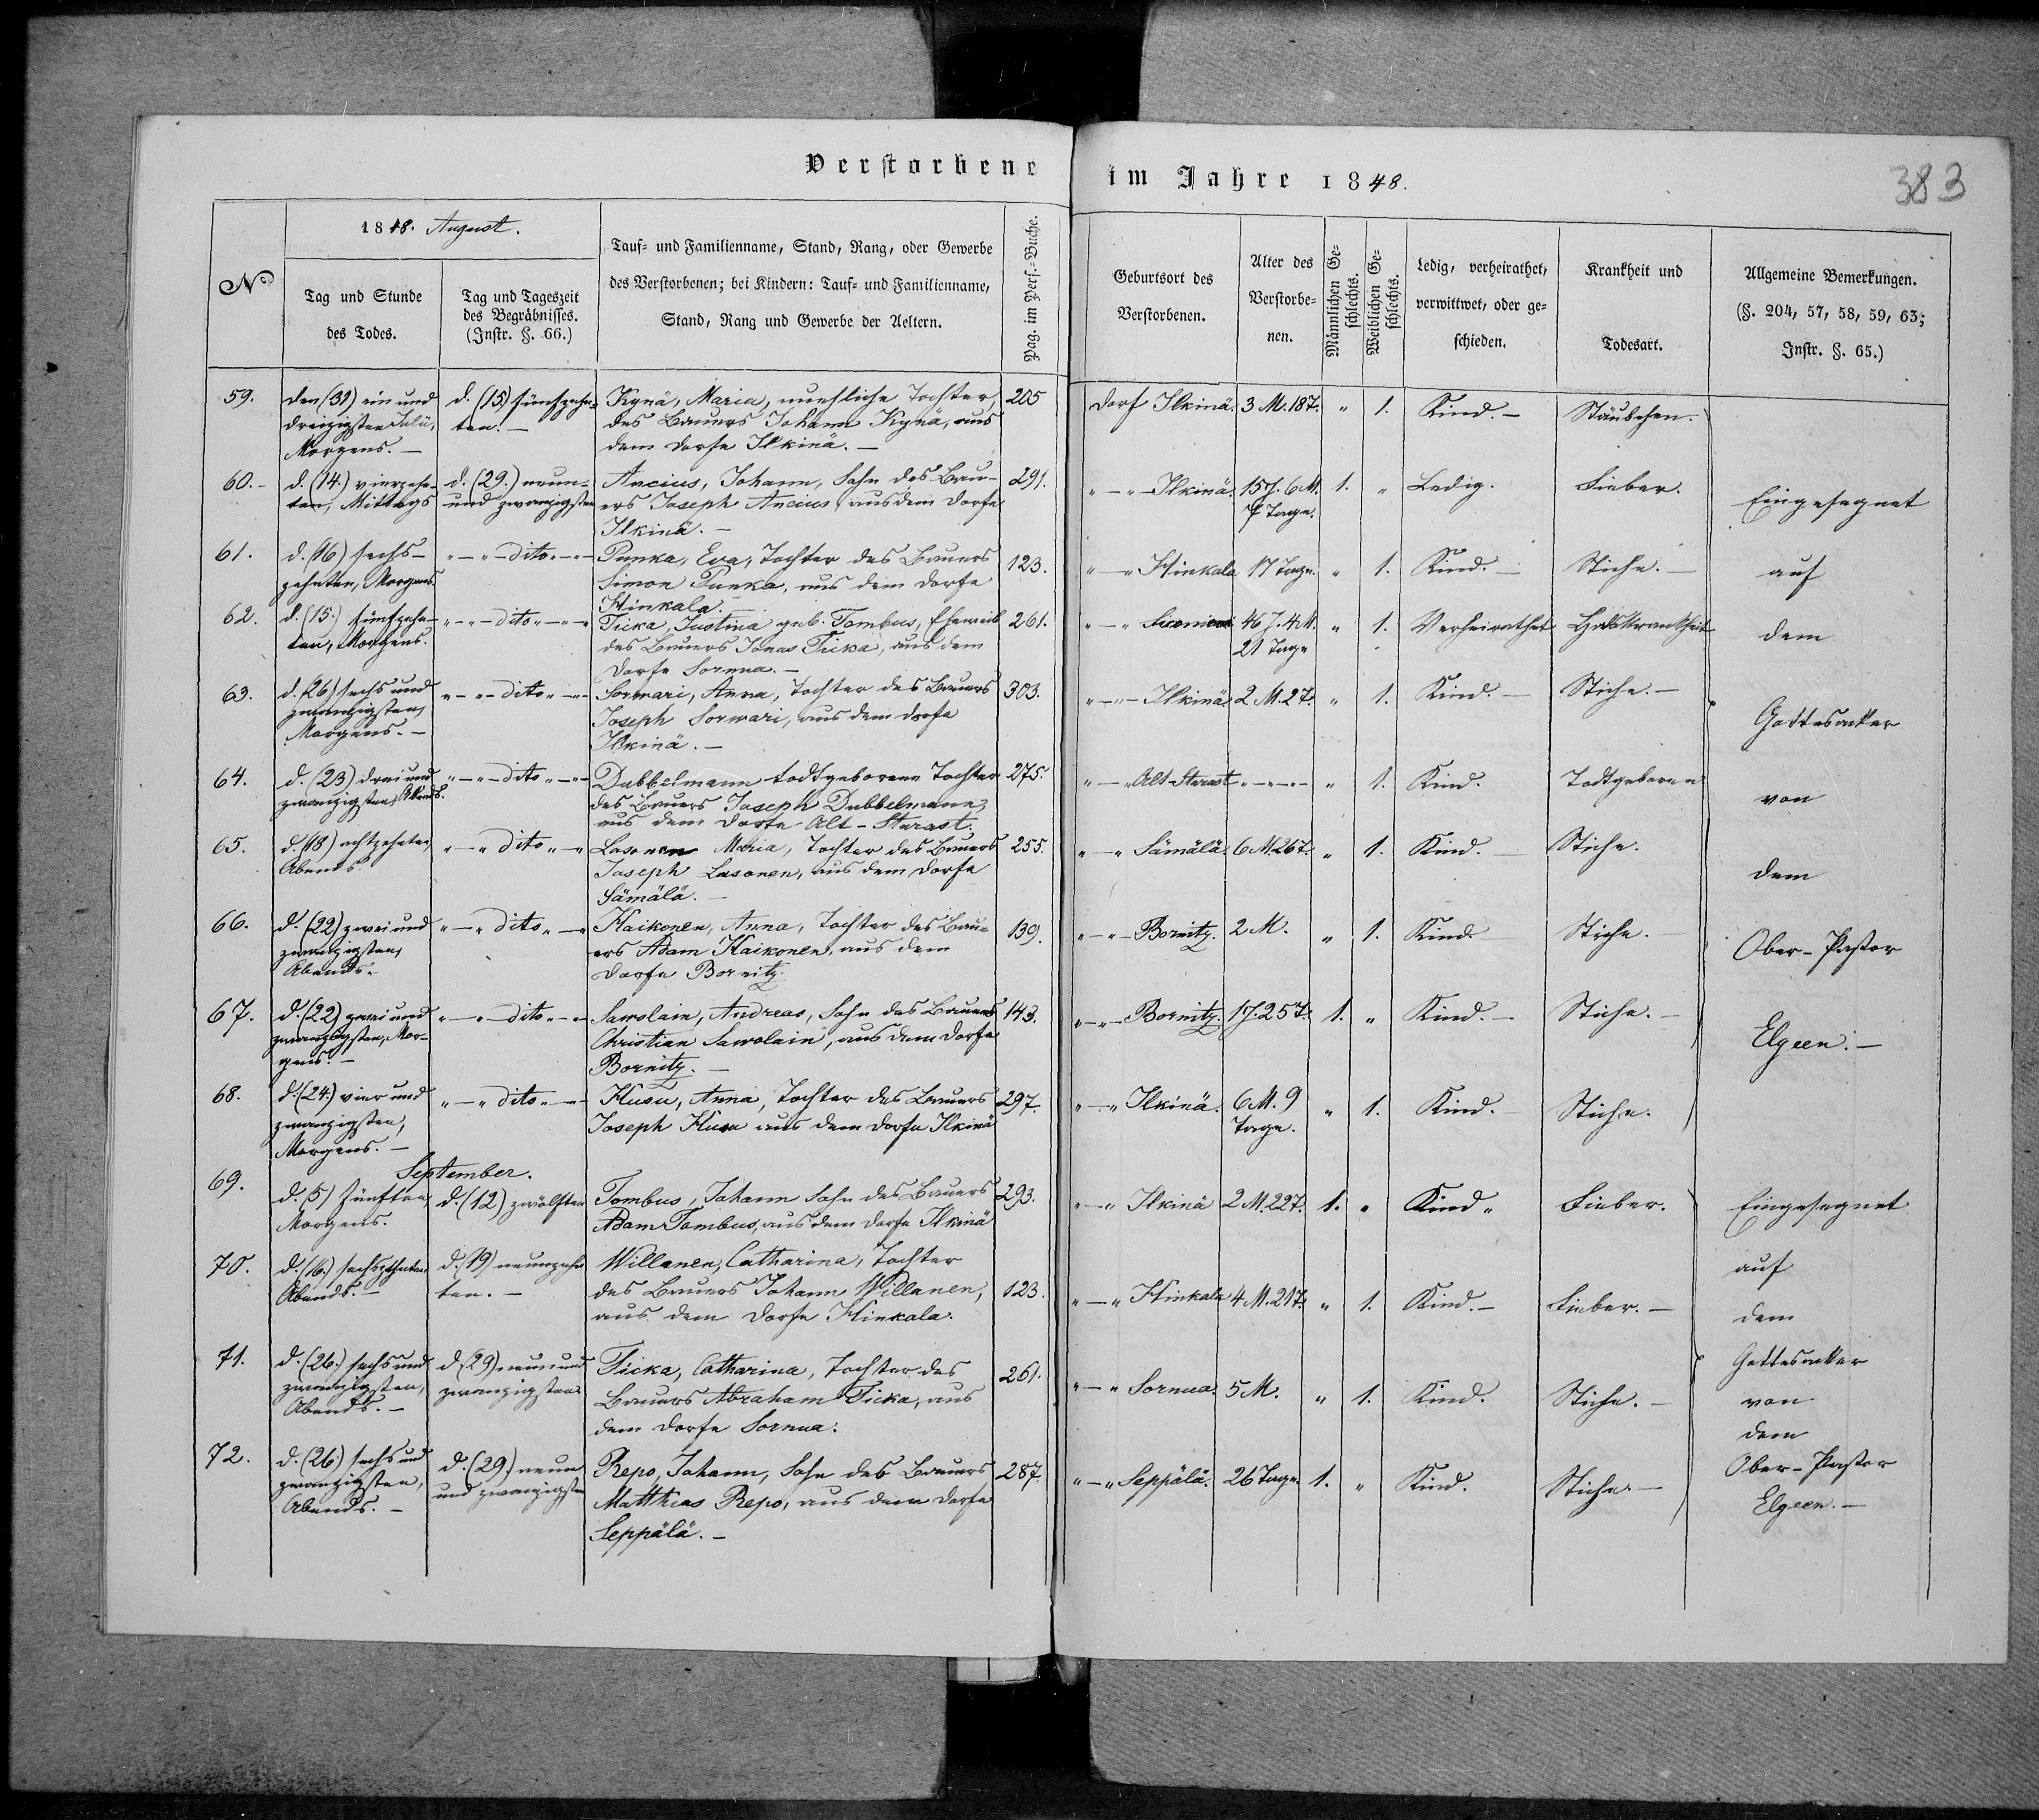 Verstorbene im Jahre 1848.
383
No
1848. August.
Tag und Stunde
des Todes.
Tag und Tageszeit
des Begräbnisses.
(Instr. §. 66.)
Tauf- und Familienname, Stand, Rang, oder Gewerbe
des Verstorbenen; bei Kindern: Tauf- und Familienname,
Stand, Rang und Gewerbe der Aeltern.
Pag. im Pers.-Buche.
Geburtsort des
Verstorbenen.
Alter des
Verstorbe-
nen.
Männlichen Ge-
schlechts.
Weiblichen Ge-
schlechts.
Ledig, verheirathet,
verwittwet, oder ge-
schieden.
Krankheit und
Todesart.
Allgemeine Bemerkungen.
(§. 204, 57, 58, 59, 63;
Instr. §. 65.)
59. den (31) ein und d. (15) fünfzehn- Kynä, Maria, uneheliche Tochter 205 Dorf Ilkinä. 3 M. 18 T. " 1. Kind.
dreizigsten Julii, ten. des Bauers Johann Kynä, aus
Morgens. dem Dorfe Ilkinä.
60. d. (14.) vierzehn- d. (29.) neun- Ancius, Johann, Sohn des Bau- 291. " Ilkinä. 15 J. 6 M. 1. " Ledig. Fieber.
ten, Mittags und zwanzigsten ers Joseph Ancius, aus dem Dorfe 7 Tage.
Ilkinä.
61. d. (16) sechs- " dito " Punka, Eva, Tochter des Bauers 123. " Hinkala 17 Tage. " 1. Kind. Stiche.
zehnten, Morgens. Simon Punka, aus dem Dorfe
Hinkala.
62. d. (15.) fünfzehn- " dito " Ticka, Justina geb. Tombus, Eheweib 261. " 46 J. 4 M. " 1. Verheirathet
ten, Morgens. des Bauers Jonas Ticka, aus dem 21 Tage
Dorfe Sornua.
63. d. (26) sechs und " dito " Sorwari, Anna, Tochter des Bauers 303. " Ilkinä 2 M. 2 T. " 1. Kind. Stiche.
zwanzigsten, Joseph Sorwari, aus dem Dorfe
Morgens. Ilkinä.
64. d. (23) drei und " dito " Dubbelmann todtgeborene Tochter 275. " Alt-Starast " " 1. Kind. Todtgeboren
zwanzigsten, Abends. des Bauers Joseph Dubbelmann,
aus dem Dorfe Alt-Starast.
65. d. (18) achtzehnten, " dito " Lasonen Maria, Tochter des Bauers 255. " Sämälä. 6 M. 26 T. " 1. Kind. Stiche.
Abends. Joseph Lasonen, aus dem Dorfe
Sämälä.
66. d. (22) zwei und " dito " Haikonen, Anna, Tochter des Bau- 139. " Bornitz. 2 M. " 1. Kind. Stiche.
zwanzigsten, ers Adam Haikonen, aus dem
Abends. Dorfe Bornitz.
67. d. (22) zwei und " dito " Sawolain, Andreas, Sohn des Bauers 143. " Bornitz. 1 J. 25 T. 1. " Kind. Stiche.
zwanzigsten, Mor- Christian Sawolain, aus dem Dorfe
gens. Bornitz.
68. d. (24.) vier und " dito " Husu, Anna, Tochter des Bauers 297. " Ilkinä. 6 M. 9 " 1. Kind. Stiche.
zwanzigsten, Joseph Husu aus dem Dorfe Ilkinä Tage.
Morgens.
Eingesegnet
auf
dem
Gottesacker
von
dem
Ober-Pastor
Elgeen.
September.
69. d. (5) fünften, d. (12) zwölften Tombus, Johann Sohn des Bauers 293. " Ilkinä 2 M. 22 T. 1. " Kind Fieber.
Morgens. Adam Tombus, aus dem Dorfe Ilkinä
70. d. (16.) sechszehnten, d. (19) neunzehn Willanen, Catharina, Tochter
Abends. ten. des Bauers Johann Willanen, 123. " Hinkala 4 M. 21 T. " 1. Kind. Fieber.
aus dem Dorfe Hinkala.
71. d. (26.) sechs und d. (29) neun und Ticka, Catharina, Tochter des 261. " Sornua. 5 M. " 1. Kind. Stiche.
zwanzigsten, zwanzigsten Bauers Abraham Ticka, aus
Abends. dem Dorfe Sornua.
72. d. (26) sechs und d. (29) neun Repo, Johann, Sohn des Bauers 287. " Seppälä. 26 Tage 1. " Kind. Stiche.
zwanzigsten, und zwanzigsten Matthias Repo, aus dem Dorfe
Abends. Seppälä.
Eingesegnet
auf
dem
Gottesacker
von
dem
Ober-Pastor
Elgeen.